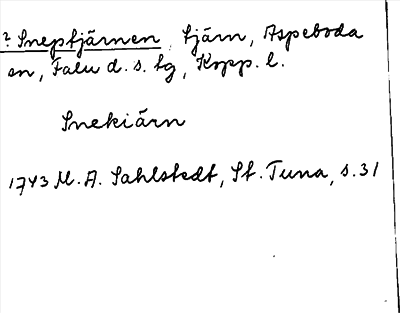 ? Sneptjärnen, tjärn, Aspeboda
sn, Falu d. s. tg, Kopp. l.
Snekiärn
1743 M. A. Sahlstedt, St. Tuna, s. 31